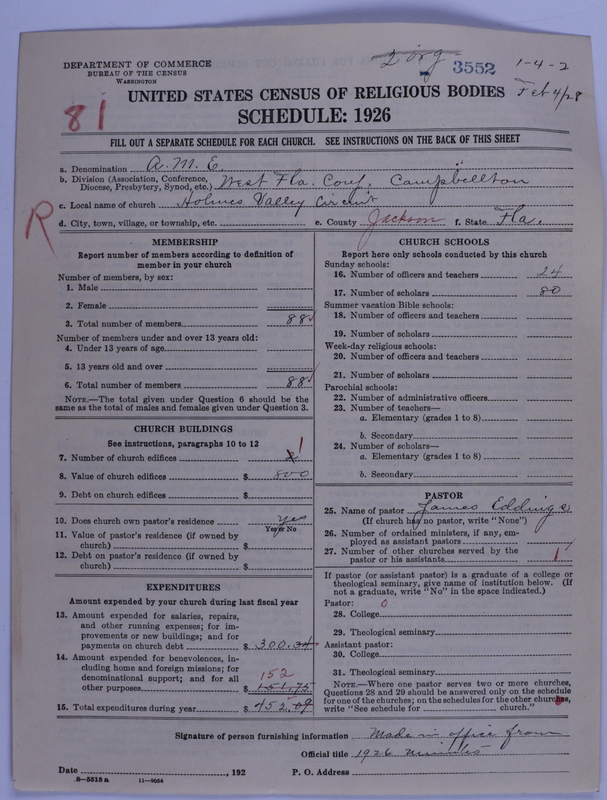 DEPARTMENT OF COMMERCE
BUREAU OF THE CENSUS
WASHINGTON
3552
1-4-2
Feb 4/28
81
UNITED STATES CENSUS OF RELIGIOUS BODIES
SCHEDULE: 1926
FILL OUT A SEPARATE SCHEDULE FOR EACH CHURCH. SEE INSTRUCTIONS ON THE BACK OF THIS SHEET
a. Denomination A.M.E.
b. Division (Association, Conference, Diocese, Presbytery, Synod, etc.) West Fla. Conf. Campbellton
c. Local name of church Holmes Valley Circuit
R
d. City, town, village, or township, etc. e. County Jackson f. State Fla.
MEMBERSHIP
Report number of members according to definition of
member in your church
Number of members, by sex:
1. Male
2. Female
3. Total number of members 88
Number of members under and over 13 years old:
4. Under 13 years of age
5. 13 years old and over
6. Total number of members 88
NOTE.—The total given under Question 6 should be
same as the total of males and females given under Question 3.
CHURCH BUILDINGS
See instructions, paragraphs 10 to 12
7. Number of church edifices 1
8. Value of church edifices $ 800
9. Debt on church edifices $
10. Does church own pastor's residence yes
Yes or No
11. Value of pastor's residence (if owned by
church) $
12. Debt on pastor's residence (if owned by
church) $
EXPENDITURES
Amount expended by your church during last fiscal year
13. Amount expended for salaries, repairs,
and other running expenses; for im-
provements or new buildings; and for
payments on church debt $ 300.34
14. Amount expended for benevolences, in-
cluding home and foreign missions; for
denominational support; and for all 152
other purposes $ 151.75
15. Total expenditures during year $ 452.09
CHURCH SCHOOLS
Report here only schools conducted by this church
Sunday schools:
16. Number of officers and teachers 24
17. Number of scholars 80
Summer vacation Bible schools:
18. Number of officers and teachers
19. Number of scholars
Week-day religious schools:
20. Number of officers and teachers
21. Number of scholars
Parochial schools:
22. Number of administrative officers
23. Number of teachers—
a. Elementary (grades 1 to 8)
b. Secondary
24. Number of scholars—
a. Elementary (grades 1 to 8)
b. Secondary
PASTOR
25. Name of pastor James Eddings
(If church has no pastor, write "None")
26. Number of ordained ministers, if any, em-
ployed as assistant pastors
27. Number of other churches served by the
pastor or his assistants 1
If pastor (or assistant pastor) is a graduate of a college or
theological seminary, give name of institution below. (If
not a graduate, write "No" in the space indicated.)
Pastor: 0
28. College
29. Theological seminary
Assistant pastor:
30. College
31. Theological seminary
NOTE.—Where one pastor serves two or more churches,
Questions 28 and 29 should be answered only on the schedule
for one of the churches; on the schedules for the other churches,
write "See schedule for church."
Signature of person furnishing information Made in office from
Official title 1926 minutes
Date , 192 P. O. Address
8—5518a 11—9054